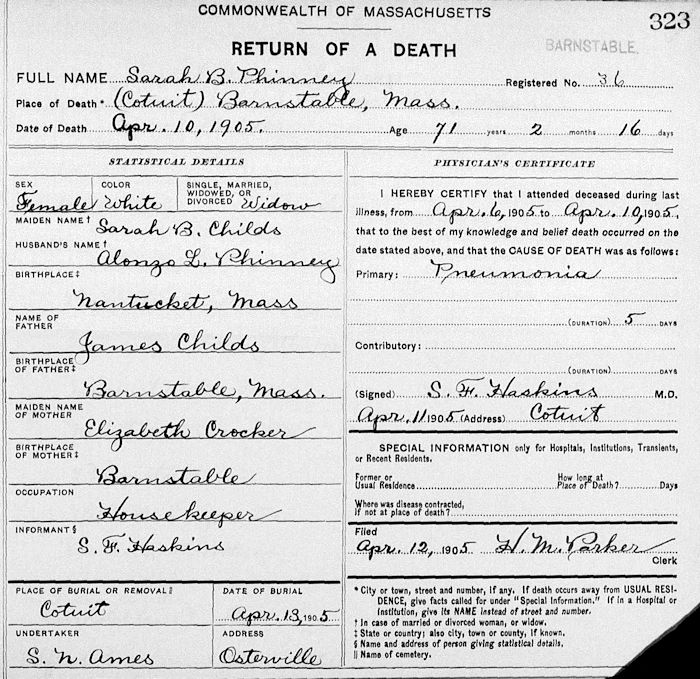 COMMONWEALTH OF MASSACHUSETTS
323
RETURN OF A DEATH
BARNSTABLE.
FULL NAME Sarah B. Phinney Registered No. 36
Place of Death* (Cotuit) Barnstable, Mass.
Date of Death Apr. 10, 1905. Age 71 years 2 months 16 days
STATISTICAL DETAILS
SEX Female
COLOR White
SINGLE, MARRIED, WIDOWED, OR DIVORCED Widow
MAIDEN NAME† Sarah B. Childs
HUSBAND'S NAME† Alonzo L. Phinney
BIRTHPLACE‡
Nantucket, Mass
NAME OF FATHER
James Childs
BIRTHPLACE OF FATHER‡
Barnstable, Mass.
MAIDEN NAME OF MOTHER
Elizabeth Crocker
BIRTHPLACE OF MOTHER‡
Barnstable
OCCUPATION
Housekeeper
INFORMANT§
S. F. Haskins
PLACE OF BURIAL OR REMOVAL||
Cotuit
DATE OF BURIAL
Apr. 13, 1905
UNDERTAKER
S. N. Ames
ADDRESS
Osterville
PHYSICIAN'S CERTIFICATE
I HEREBY CERTIFY that I attended deceased during last
illness, from Apr. 6, 1905 to Apr. 10, 1905,
that to the best of my knowledge and belief death occurred on the
date stated above, and that the CAUSE OF DEATH was as follows:
Primary: Pneumonia
(DURATION) 5 DAYS
Contributory:
(DURATION) DAYS
(Signed) S. F. Haskins M.D.
Apr. 11 1905 (Address) Cotuit
SPECIAL INFORMATION only for Hospitals, Institutions, Transients,
or Recent Residents.
Former or Usual Residence
How long at Place of Death? Days
Where was disease contracted,
if not at place of death?
Filed
Apr. 12, 1905 H. M. Parker
Clerk
* City or town, street and number, if any. If death occurs away from USUAL RESI-
DENCE, give facts called for under "Special Information." If in a Hospital or
Institution, give its NAME instead of street and number.
† In case of married or divorced woman, or widow.
‡ State or country; also city, town or county, if known.
§ Name and address of person giving statistical details.
|| Name of cemetery.